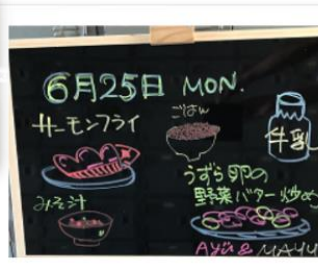 6月25日 MON.
サーモンフライ
ごはん
牛乳
うずら卵の
野菜バター炒め
みそ汁
Ayu & MAYU